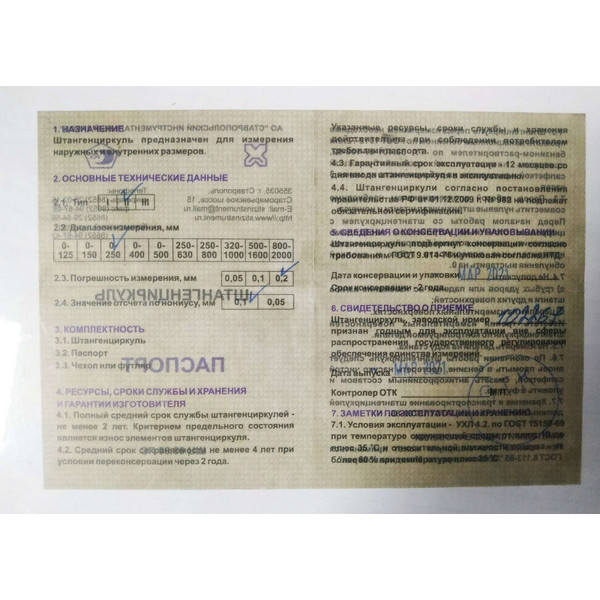 1. НАЗНАЧЕНИЕ
Штангенциркуль предназначен для измерения
наружных и внутренних размеров.
2. ОСНОВНЫЕ ТЕХНИЧЕСКИЕ ДАННЫЕ
2.1. Тип I II III
2.2. Диапазон измерения, мм
0-125 0-150 0-250 0-400 0-500 250-630 250-800 320-1000 500-1600 800-2000
2.3. Погрешность измерения, мм 0,05 0,1 0,2
2.4. Значение отсчета по нониусу, мм 0,1 0,05
3. КОМПЛЕКТНОСТЬ
3.1. Штангенциркуль
3.2. Паспорт
2.3. Чехол или футляр
4. РЕСУРСЫ, СРОКИ СЛУЖБЫ И ХРАНЕНИЯ
И ГАРАНТИИ ИЗГОТОВИТЕЛЯ
4.1. Полный средний срок службы штангенциркулей -
не менее 2 лет. Критерием предельного состояния
является износ элементов штангенциркуля.
4.2. Средний срок сохраняемости не менее 4 лет при
условии переконсервации через 2 года.
Указанные ресурсы, сроки службы и хранения
действительны при соблюдении потребителем
требований паспорта.
4.3. Гарантийный срок эксплуатации - 12 месяцев со
дня ввода штангенциркуля в эксплуатацию.
4.4. Штангенциркули согласно постановления
правительства РФ от 01.12.2009 г. № 982 не подлежат
обязательной сертификации.
5. СВЕДЕНИЯ О КОНСЕРВАЦИИ И УПАКОВЫВАНИИ
Штангенциркуль подвергнут консервации согласно
требованиям ГОСТ 9.014-78 и упакован согласно НТД.
Дата консервации и упаковки МАР 2021
Срок консервации - 2 года.
6. СВИДЕТЕЛЬСТВО О ПРИЕМКЕ
Штангенциркуль, заводской номер
признан годным для эксплуатации вне сферы
распространения государственного регулирования
обеспечения единства измерений
Дата выпуска МАР 2021
Контролер ОТК М.П.
7. ЗАМЕТКИ ПО ЭКСПЛУАТАЦИИ И ХРАНЕНИЮ
7.1. Условия эксплуатации - УХЛ 4.2. по ГОСТ 15150-69
при температуре окружающей среды от плюс 10 до
плюс 35 °С и относительной влажности не
более 80 % при температуре плюс 25 °С